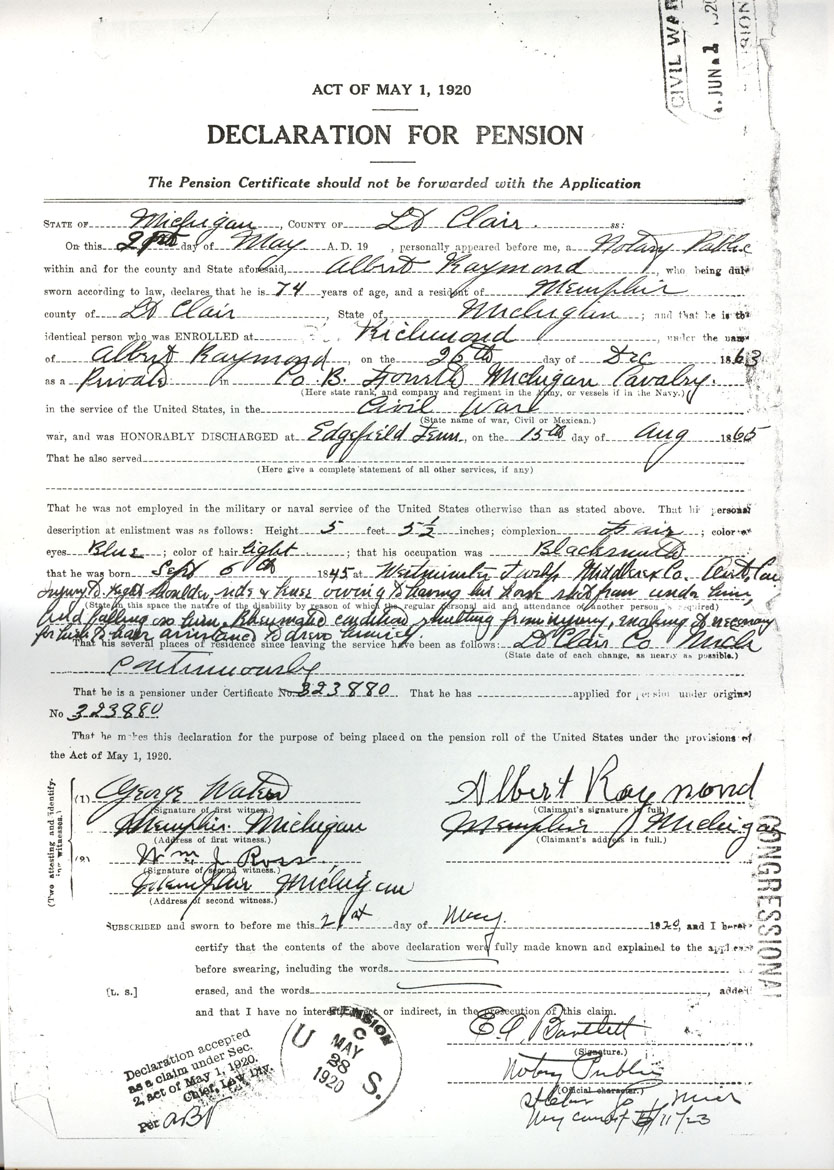 CIVIL WAR
JUN 1 1920
DIVISION
ACT OF MAY 1, 1920
DECLARATION FOR PENSION
The Pension Certificate should not be forwarded with the Application
STATE OF Michigan, COUNTY OF St Clair. ss:
On this 21st day of May A. D. 19 , personally appeared before me, a Notary Public
within and for the county and State aforesaid, Albert Raymond, who being duly
sworn according to law, declares that he is 74 years of age, and a resident of Memphis
county of St Clair, State of Michigan; and that he is the
identical person who was ENROLLED at Richmond, under the name
of Albert Raymond, on the 26th day of Dec 1863
as a Private in Co. B. Fourth Michigan Cavalry.
(Here state rank, and company and regiment in the Army, or vessels if in the Navy.)
in the service of the United States, in the Civil War
(State name of war, Civil or Mexican.)
war, and was HONORABLY DISCHARGED at Edgefield Tenn, on the 15th day of Aug 1865
That he also served
(Here give a complete statement of all other services, if any)
That he was not employed in the military or naval service of the United States otherwise than as stated above. That his personal
description at enlistment was as follows: Height 5 feet 5½ inches; complexion Fair; color of
eyes Blue; color of hair light; that his occupation was Blacksmith
that he was born Sept 6th 1845 at Westminster Twsp. Middlesex Co. Ont. Can
injury to right shoulder, side & knee owing to having his horse shot from under him,
(State in this space the nature of the disability by reason of which the regular personal aid and attendance of another person is required)
and falling on him, Rheumatic condition resulting from injury, making it necessary
for him to have assistance to dress himself.
That his several places of residence since leaving the service have been as follows: St Clair Co Mich
(State date of each change, as nearly as possible.)
continuously
That he is a pensioner under Certificate No. 323880. That he has applied for pension under original
No 323880.
That he makes this declaration for the purpose of being placed on the pension roll of the United States under the provisions of
the Act of May 1, 1920.
(Two attesting and identifying witnesses.)
(1) George Water Albert Raymond
(Signature of first witness.) (Claimant's signature in full.)
Memphis. Michigan Memphis Michigan
(Address of first witness.) (Claimant's address in full.)
(2) Wm J. Ross
(Signature of second witness.)
Memphis Michigan
(Address of second witness.)
CONGRESSIONAL
SUBSCRIBED and sworn to before me this 21st day of May. 1920, and I hereby
certify that the contents of the above declaration were fully made known and explained to the applicant
before swearing, including the words
[L. S.] erased, and the words , added
and that I have no interest, direct or indirect, in the prosecution of this claim.
E C Bartlett
(Signature.)
Notary Public
(Official character.)
St Clair Co Mich
My com exp 5/11/23
PENSION
C
MAY
28
1920
U S.
Declaration accepted
as a claim under Sec.
2, act of May 1, 1920.
Chief, Law Div.
Per ABP